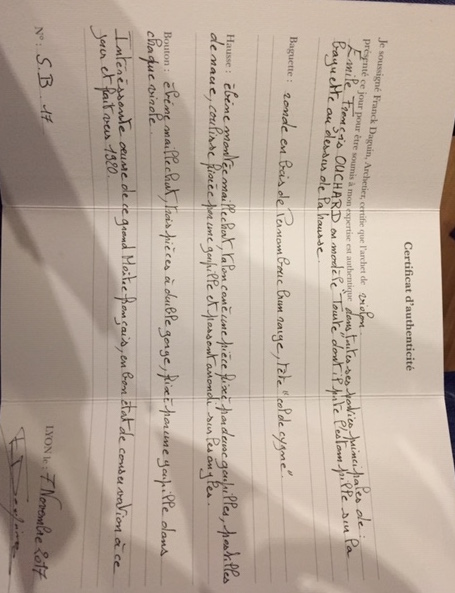 Certificat d'authenticité
Je soussigné Franck Daguin, Archetier, certifie que l'archet de violon
présenté ce jour pour être soumis à mon expertise est authentique dans toutes ses parties principales de :
Emile François OUCHARD au modèle "Tourte" dont il porte l'estampille sur la
baguette au dessus de la hausse.
Baguette : ronde en bois de Pernambouc brun rouge, tête "col de cygne"
Hausse : ébène montée maillechort, talon carré une pièce fixé par deux goupilles, pastilles
de nacre, coulisse fixée par une goupille et passant arrondi sur les angles.
Bouton : ébène maillechort, trois pièces à double gorge, fixé par une goupille dans
chaque virole.
Intéressante œuvre de ce grand Maître français, en bon état de conservation à ce
jour et fait vers 1920.
N° : S.B. 17
LYON le : 7 Novembre 2017